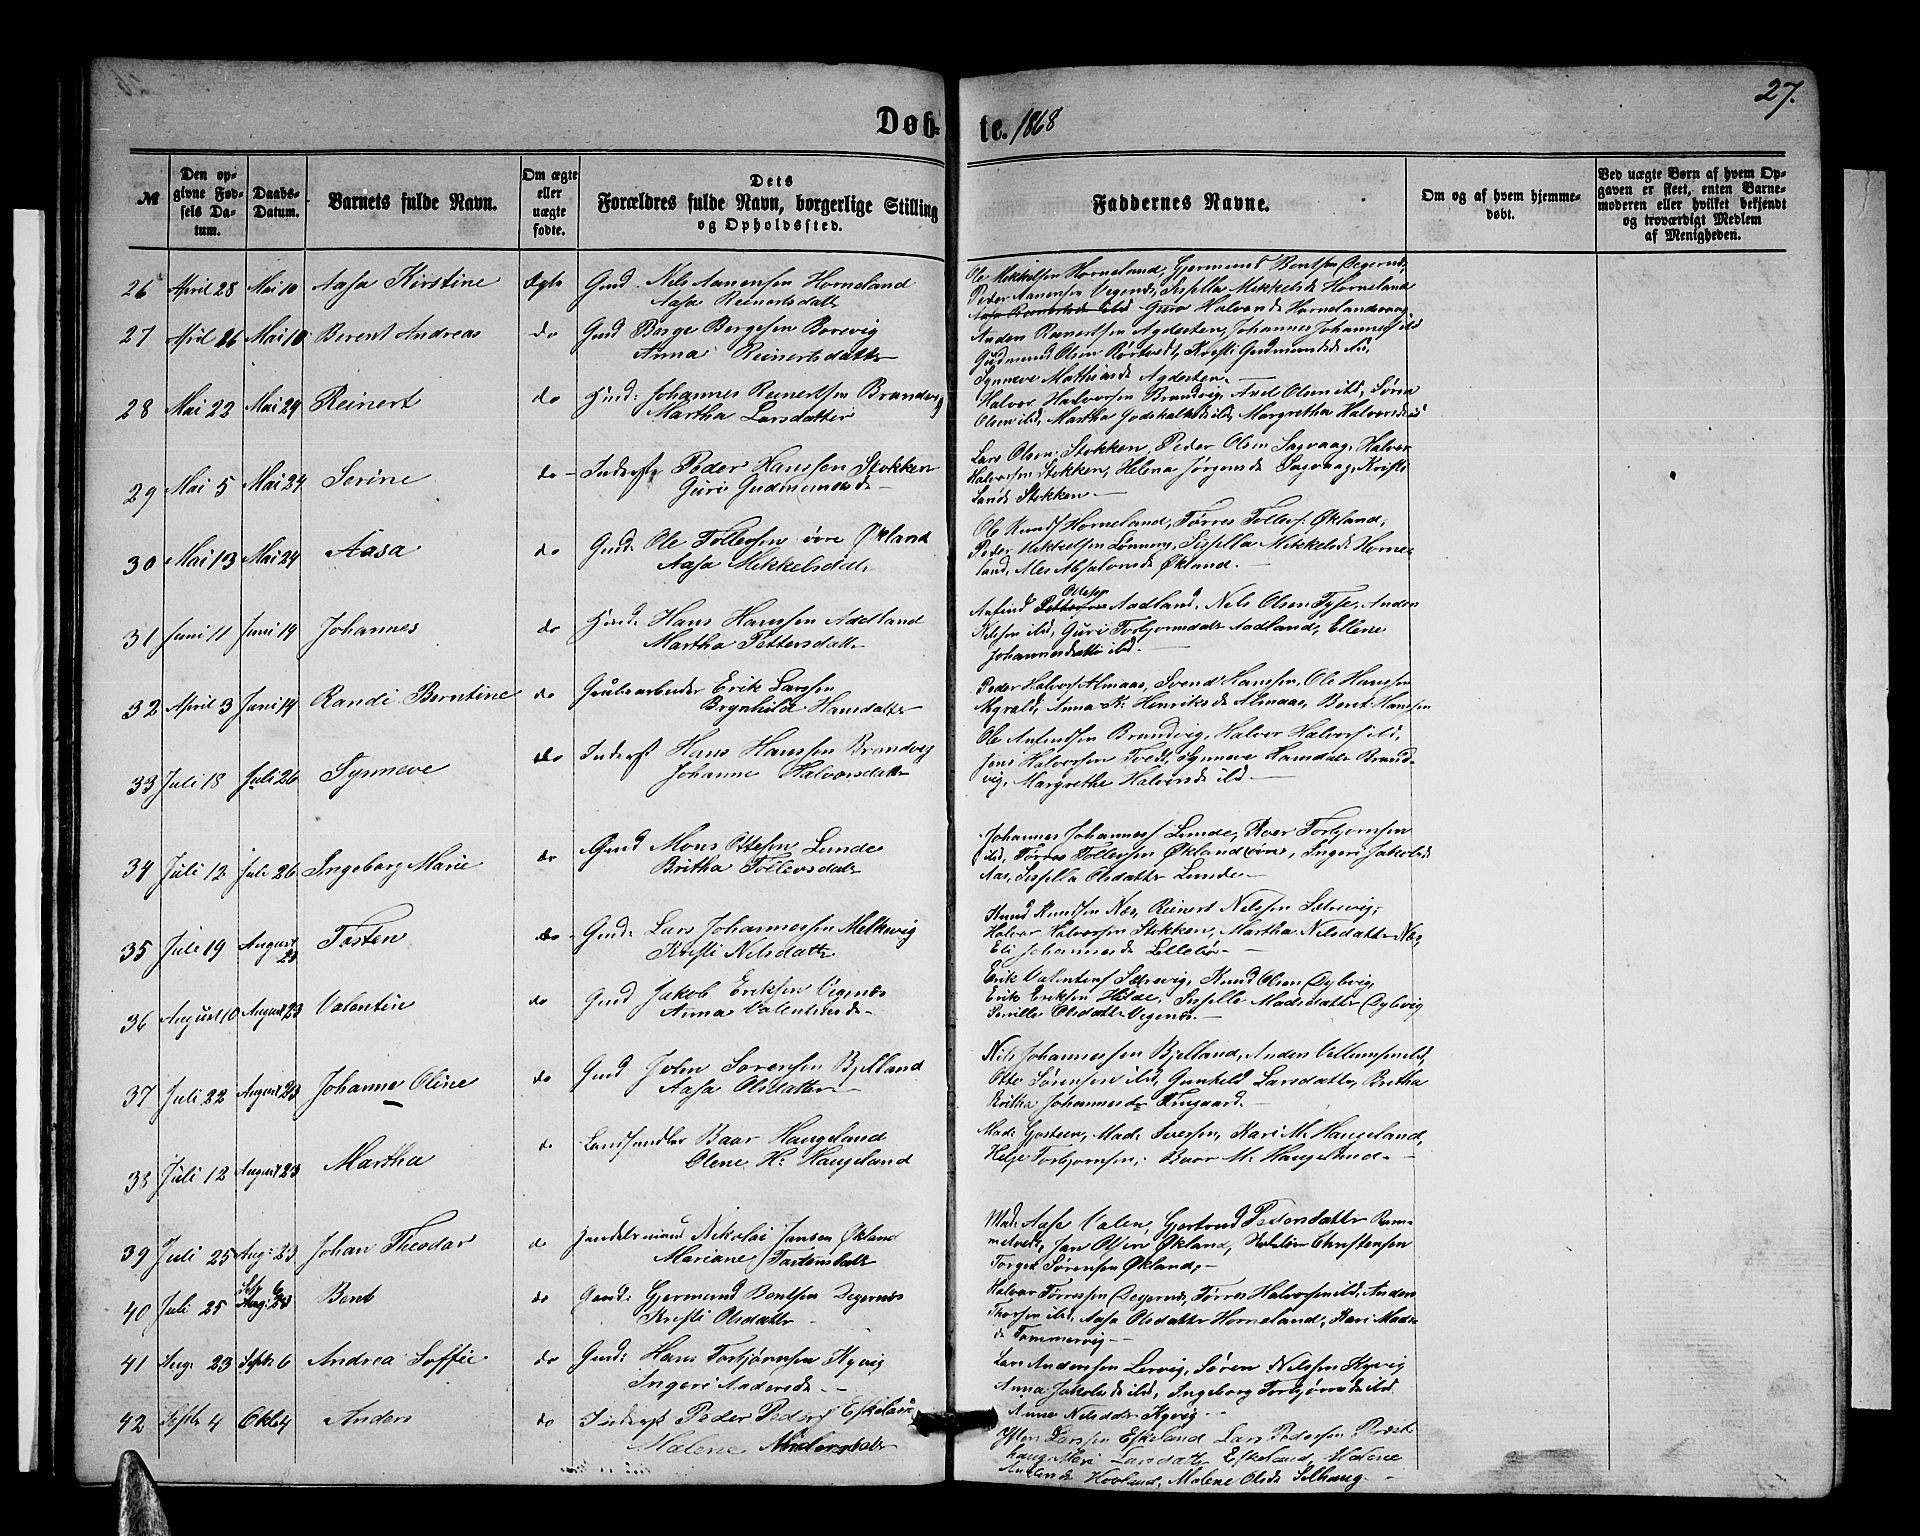 27.
Døb- te. 1868
№
Den opgivne Fødsels Datum.
Daabs-Datum.
Barnets fulde Navn.
Om ægte eller uægte fødte.
Dets Forældres fulde Navn, borgerlige Stilling og Opholdssted.
Faddernes Navne.
Om og af hvem hjemmedøbt.
Ved uægte Børn af hvem Opgaven er skeet, enten Barnemoderen eller hvilket bekjendt og troværdigt Medlem af Menigheden.
26 April 28 Mai 10 Aasa Kirstine ægte Gmd. Nils Aanensen Horneland
Aasa Reinertsdatt
Ole Mikkelsen Horneland, Gjermund Bentsen Degernes,
Peder Aanensen Vegenes, Sissella Mikkelsd Horneland
Guro Halvorsd Hornelandsvaag
27 April 26 Mai 10 Berent Andreas do Gmd Børge Børgesen Borevig
Anna Reinertsdatter
Anders Reinertsen Agdesten, Johannes Johanness ibd
Gudmund Olsen Rørtvedt, Kristi Gudmundsd
Synneve Mathiasd Agdesten
28 Mai 22 Mai 24 Reinert do Hmd: Johannes Reinertsen Brandvig
Martha Larsdatter
Halvor Halvorsen Brandvig, Axel Olsen ibd, Sørra
Olsen ibd, Martha Godskalksd ibd, Margretha Halvorsd ibd
29 Mai 5 Mai 24 Serine do Inderst Peder Hanssen Stokken
Guri Gudmundsd
Lars Olsen Stokken, Peder Olsen Sagvaag, Halvor
Halvorsen Stokken, Helena Jørgensd Sagvaag, Kristi
Larsd Stokken
30 Mai 13 Mai 24 Aasa do Gmd: Ole Tollevsen øvre Økland
Aasa Mikkelsdat
Ole Knuds Horneland, Tørres Tollevs: Økland,
Peder Mikkelsen Lønning, Sissella Mikkelsd Horneland,
Ales Absalonsd Økland.
31 Juni 11 Juni 14 Johannes do Hmd: Hans Hanssen Adelland
Martha Pettersdatt
Anfind Olsen Aadland, Nils Olsen Tyse, Anders
Nilssen ibd, Guri Torbjørnsdatt Aadland, Ellene
Johannesdatter ibd.
32 April 3 Juni 14 Randi Berntine do Grubearbeider Erik Larssen
Brynhilde Hansdatter
Peder Halvors Almaas, Svend Hanssen, Ole Hanssen
Anna K. Henriksd Almaas, Beret Hanssen
33 Juli 18 Juli 26 Synneve do Inderst Hans Hanssen Brandvig
Johanne Halvorsdatter
Ole Anfindsen Brandvig, Halvor Halvors ibd,
Jens Halvorsen Tveit, Synneve Hansdatt Brandvig,
Margrethe Halvorsd ibd
34 Juli 12 Juli 26 Ingeborg Marie do Gmd Mons Ottesen Lunde
Britha Tollevsdatt
Johannes Johanness Lunde, Roar Torbjørnsen
ibd, Tørres Tollevsen Økland øvre, Ingeri Jakobsd
Aas, Sissella Olsdatter Lunde
35 Juli 19 August 23 Tosten do Gmd: Lars Johannessen Melkevig
Kristi Nilsdatt
Knud Knudsen Næs, Reinert Nilssen Sætrevig,
Halvor Halvorsen Stokken, Martha Nilsdatter Næs,
Eli Johannesd Lillebø
36 August 10 August 23 Valentin do Gmd Jakob Eriksen Vegenes
Anna Valentinsd
Erik Valentins Sætrevig, Knud Olsen Dybvig,
Erik Eriksen Hilde, Sissille Madsdatter Dybvig
Pernille Olsdatter Vegenes.
37 Juli 22 August 23 Johanne Oline do Gmd John Sørensen Bjelland
Aasa Olsdatter
Nils Johannessen Bjelland, Anders Villumsen ibd,
Otto Sørensen ibd, Gunhild Larsdatter, Britha
Britha Johannesd
38 Juli 12 August 23 Martha do Landhandler Baar Haugeland
Olene H: Haugeland
Mad: Gosteen, Mad: Sivessen, Kari M. Haugeland,
Helje Torbjørnsen, Baar M. Haugeland
39 Juli 25 Aug: 23 Johan Theodar do Handelsmand Nikolai Jansen Økland
Mariane Tostensdatt
Mad: Aase Valen, Gjertrud Pedersdatter Rommetvedt,
Jan Olsen Økland, Christensen
Torger Sørensen Økland,
40 Juli 25 Sep 6 Bent do Gmd: Gjermund Bentsen Degernes
Kristi Olsdatter
Halvor Tørressen Degernes, Tørres Halvorsen ibd, Anders
Thorsen ibd, Aasa Olsdatter Horneland, Kari Madsd
Tommervig
41 Aug: 23 Septb 6 Andrea Soffie do Gmd: Hans Torbjørnsen Kyvig
Ingeri Andersd
Lars Andersen Lervig, Søren Nilssen Kyvig
Anna Jakobsd ibd, Ingeborg Torbjørnsd ibd
Anna Nilsdtr Kyvig
42 Septb 4 Oktb 4 Anders do Inderst Peder Peders Eskeland
Malene Andersdatt
Larssen Eskeland Lars Pedersen
Larsdatter Eskeland, Malene
Hovland, Malene Olsd